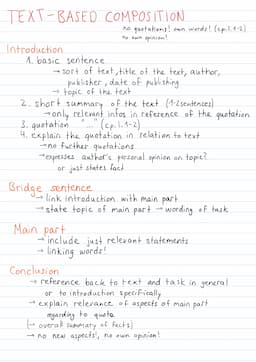 TEXT-BASED COMPOSITION
no quotations! own words! (cp.l.1-2)
no own opinion!
Introduction
1. basic sentence
→ sort of text, title of the text, author,
publisher, date of publishing
→ topic of the text
2. short summary of the text (1-2 sentences)
→ only relevant infos in reference of the quotation
3. quotation "..." (cp.l.1-2)
4. explain the quotation in relation to text
→ no further quotations
→ expresses author's personal opinion on topic?
or just states fact
Bridge sentence
→ link introduction with main part
→ state topic of main part → wording of task
Main part
→ include just relevant statements
→ linking words!
Conclusion
→ reference back to text and task in general
or to introduction specifically
→ explain relevance of aspects of main part
agording to quote
(→ overall summary of facts)
→ no new aspects!, no own opinion!